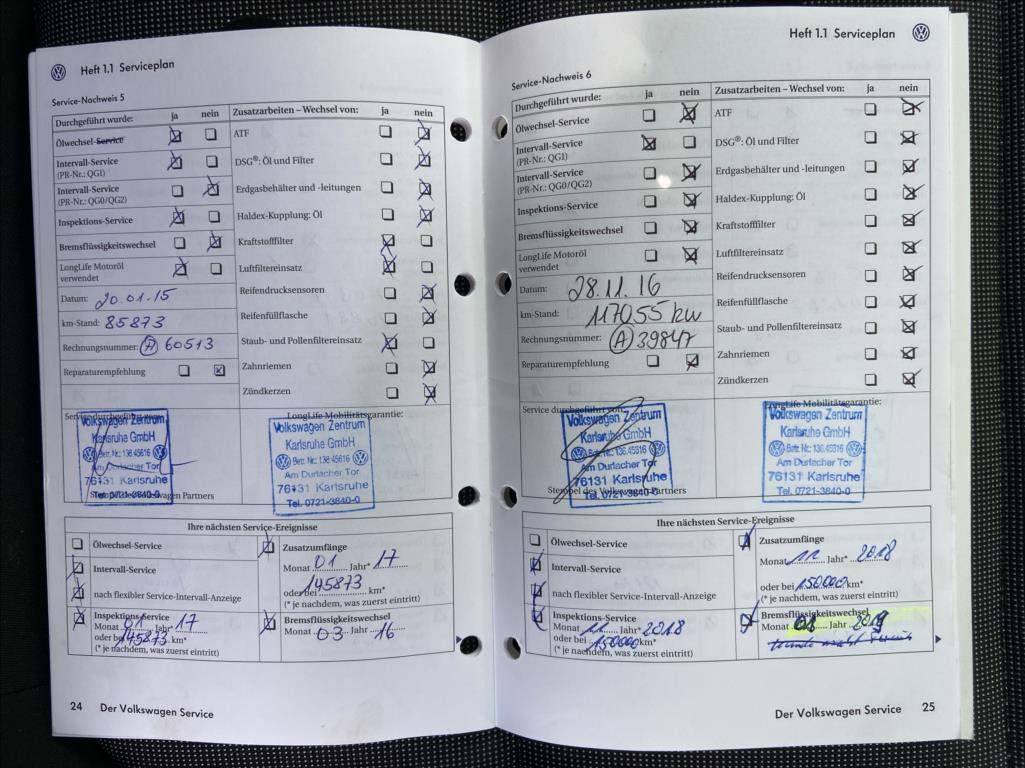 Heft 1.1 Serviceplan
Service-Nachweis 5
Durchgeführt wurde: ja nein
Ölwechsel-Service
Intervall-Service
(PR-Nr.: QGI)
Intervall-Service
(PR-Nr.: QG0/QG2)
Inspektions-Service
Bremsflüssigkeitswechsel
LongLife Motoröl
verwendet
Datum: 20.01.15
km-Stand: 85873
Rechnungsnummer: (A) 60513
Reparaturempfehlung
Zusatzarbeiten – Wechsel von: ja nein
ATF
DSG®: Öl und Filter
Erdgasbehälter und -leitungen
Haldex-Kupplung: Öl
Kraftstofffilter
Luftfiltereinsatz
Reifendrucksensoren
Reifenfüllflasche
Staub- und Pollenfiltereinsatz
Zahnriemen
Zündkerzen
Service durchgeführt von:
Volkswagen Zentrum
Karlsruhe GmbH
Betr. Nr.: 136.45616
Am Durlacher Tor
76131 Karlsruhe
Tel. 0721-3840-0
Stempel des Volkswagen Partners
LongLife Mobilitätsgarantie:
Volkswagen Zentrum
Karlsruhe GmbH
Betr. Nr.: 136.45616
Am Durlacher Tor
76131 Karlsruhe
Tel. 0721-3840-0
Ihre nächsten Service-Ereignisse
Ölwechsel-Service
Intervall-Service
nach flexibler Service-Intervall-Anzeige
Inspektions-Service
Monat 01 Jahr* 17
oder bei 145873 km*
(* je nachdem, was zuerst eintritt)
Zusatzumfänge
Monat 01 Jahr* 17
oder bei 145873 km*
(* je nachdem, was zuerst eintritt)
Bremsflüssigkeitswechsel
Monat 03 Jahr 16
24 Der Volkswagen Service
Heft 1.1 Serviceplan
Service-Nachweis 6
Durchgeführt wurde: ja nein
Ölwechsel-Service
Intervall-Service
(PR-Nr.: QGI)
Intervall-Service
(PR-Nr.: QG0/QG2)
Inspektions-Service
Bremsflüssigkeitswechsel
LongLife Motoröl
verwendet
Datum: 28.11.16
km-Stand: 117055 km
Rechnungsnummer: (A) 39847
Reparaturempfehlung
Zusatzarbeiten – Wechsel von: ja nein
ATF
DSG®: Öl und Filter
Erdgasbehälter und -leitungen
Haldex-Kupplung: Öl
Kraftstofffilter
Luftfiltereinsatz
Reifendrucksensoren
Reifenfüllflasche
Staub- und Pollenfiltereinsatz
Zahnriemen
Zündkerzen
Service durchgeführt von:
Volkswagen Zentrum
Karlsruhe GmbH
Betr. Nr.: 136.45616
Am Durlacher Tor
76131 Karlsruhe
Tel. 0721-3840-0
Stempel des Volkswagen Partners
LongLife Mobilitätsgarantie:
Volkswagen Zentrum
Karlsruhe GmbH
Betr. Nr.: 136.45616
Am Durlacher Tor
76131 Karlsruhe
Tel. 0721-3840-0
Ihre nächsten Service-Ereignisse
Ölwechsel-Service
Intervall-Service
nach flexibler Service-Intervall-Anzeige
Inspektions-Service
Monat 11 Jahr* 2018
oder bei 150000 km*
(* je nachdem, was zuerst eintritt)
Zusatzumfänge
Monat 11 Jahr* 2018
oder bei 150000 km*
(* je nachdem, was zuerst eintritt)
Bremsflüssigkeitswechsel
Monat 03 Jahr 2019
Der Volkswagen Service 25